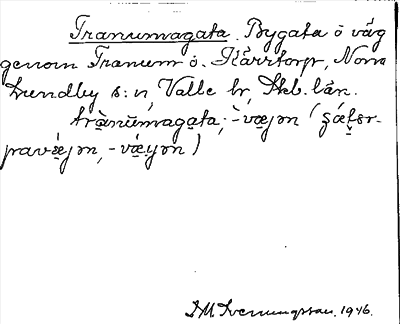 Tranumagata. Bygata o väg
genom Tranum o. Kärrtorp, Norra
Lundby s:n, Valle hr, Skb. län.
trànŭmagata; -væjən (
pravǽjən, -vǽyən)
Svenungsson. 1946.